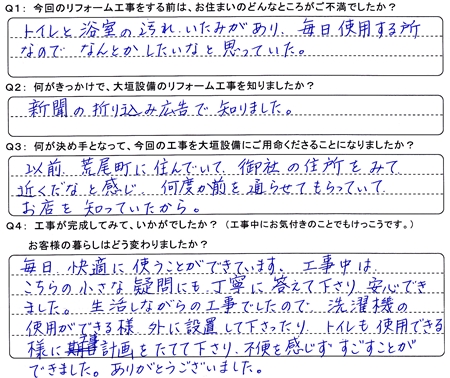 Q1： 今回のリフォーム工事をする前は、お住まいのどんなところがご不満でしたか？
トイレと浴室の汚れ、いたみがあり、毎日使用する所
なので なんとかしたいなと思っていた。
Q2： 何がきっかけで、大垣設備のリフォーム工事を知りましたか？
新聞の折り込み広告で知りました。
Q3： 何が決め手となって、今回の工事を大垣設備にご用命くださることになりましたか？
以前、荒尾町に住んでいて、御社の住所をみて
近くだなと感じ、何度か前を通らせてもらっていて
お店を知っていたから。
Q4： 工事が完成してみて、いかがでしたか？（工事中にお気付きのことでもけっこうです。）
お客様の暮らしはどう変わりましたか？
毎日、快適に使うことができています。工事中は、
こちらの小さな疑問にも丁寧に答えて下さり、安心でき
ました。生活しながらの工事でしたので、洗濯機の
使用ができる様、外に設置して下さったり、トイレも使用できる
様に計画をたてて下さり、不便を感じず すごすことが
できました。ありがとうございました。